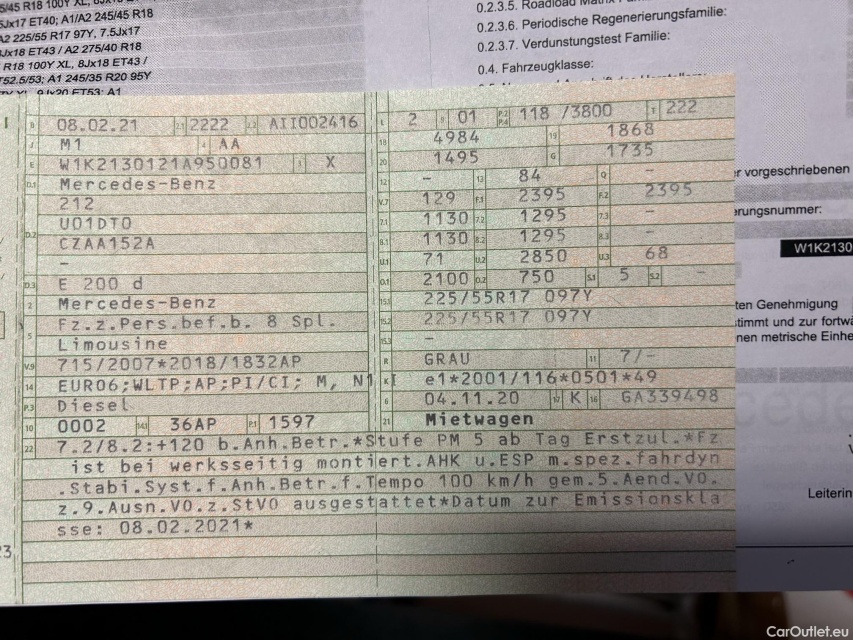 5/45 R18 100Y XL, 8Jx18
5Jx17 ET40; A1/A2 245/45 R18
A2 225/55 R17 97Y, 7.5Jx17
8Jx18 ET43 / A2 275/40 R18
R18 100Y XL, 8Jx18 ET43 /
ET52.5/53; A1 245/35 R20 95Y
9Jx20 ET53; A1
0.2.3.5. Roadload Matrix
0.2.3.6. Periodische Regenerierungsfamilie:
0.2.3.7. Verdunstungstest Familie:
0.4. Fahrzeugklasse:
B 08.02.21 2.1 2222 2.2 AII002416
J M1 4 AA
E W1K2130121A950081 3 X
D.1 Mercedes-Benz
212
U01DT0
D.2 CZAA152A
–
D.3 E 200 d
2 Mercedes-Benz
5 Fz.z.Pers.bef.b. 8 Spl.
Limousine
V.9 715/2007*2018/1832AP
14 EURO6;WLTP;AP;PI/CI; M, N1 I
P.3 Diesel
10 0002 14.1 36AP P.1 1597
L 2 9 01 P.2 P.4 118 /3800 T 222
18 4984 19 1868
20 1495 G 1735
12 – 13 84 Q –
V.7 129 F.1 2395 F.2 2395
7.1 1130 7.2 1295 7.3 –
8.1 1130 8.2 1295 8.3 –
U.1 71 U.2 2850 U.3 68
O.1 2100 O.2 750 S.1 5 S.2 –
15.1 225/55R17 097Y
15.2 225/55R17 097Y
15.3 –
R GRAU 11 7/-
K e1*2001/116*0501*49
6 04.11.20 17 K 16 GA339498
21 Mietwagen
22 7.2/8.2:+120 b.Anh.Betr.*Stufe PM 5 ab Tag Erstzul.*Fz
ist bei werksseitig montiert.AHK u.ESP m.spez.fahrdyn
.Stabi.Syst.f.Anh.Betr.f.Tempo 100 km/h gem.5.Aend.VO.
z.9.Ausn.VO.z.StVO ausgestattet*Datum zur Emissionskla
sse: 08.02.2021*
r vorgeschriebenen
erungsnummer:
W1K2130
ten Genehmigung
timmt und zur fortw
nen metrische Einhe
Leiterin
CarOutlet.eu